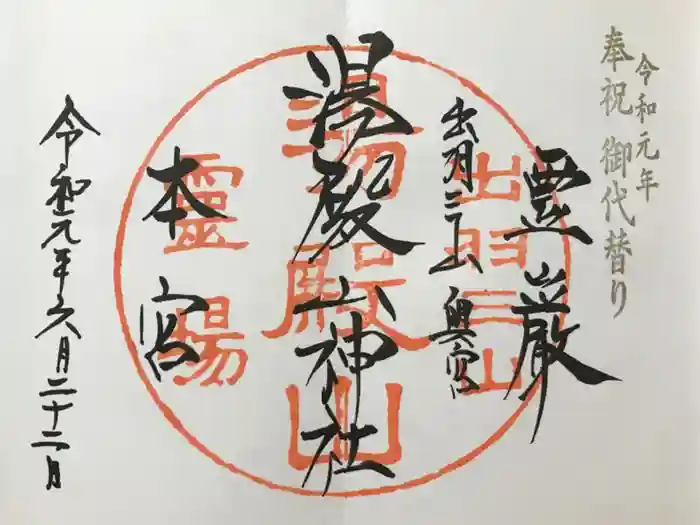 令和元年
奉祝 御代替り
霊巌
出羽三山 奥宮
湯殿山神社
本宮
令和元年六月二十二日
出羽三山
湯殿山
靈場